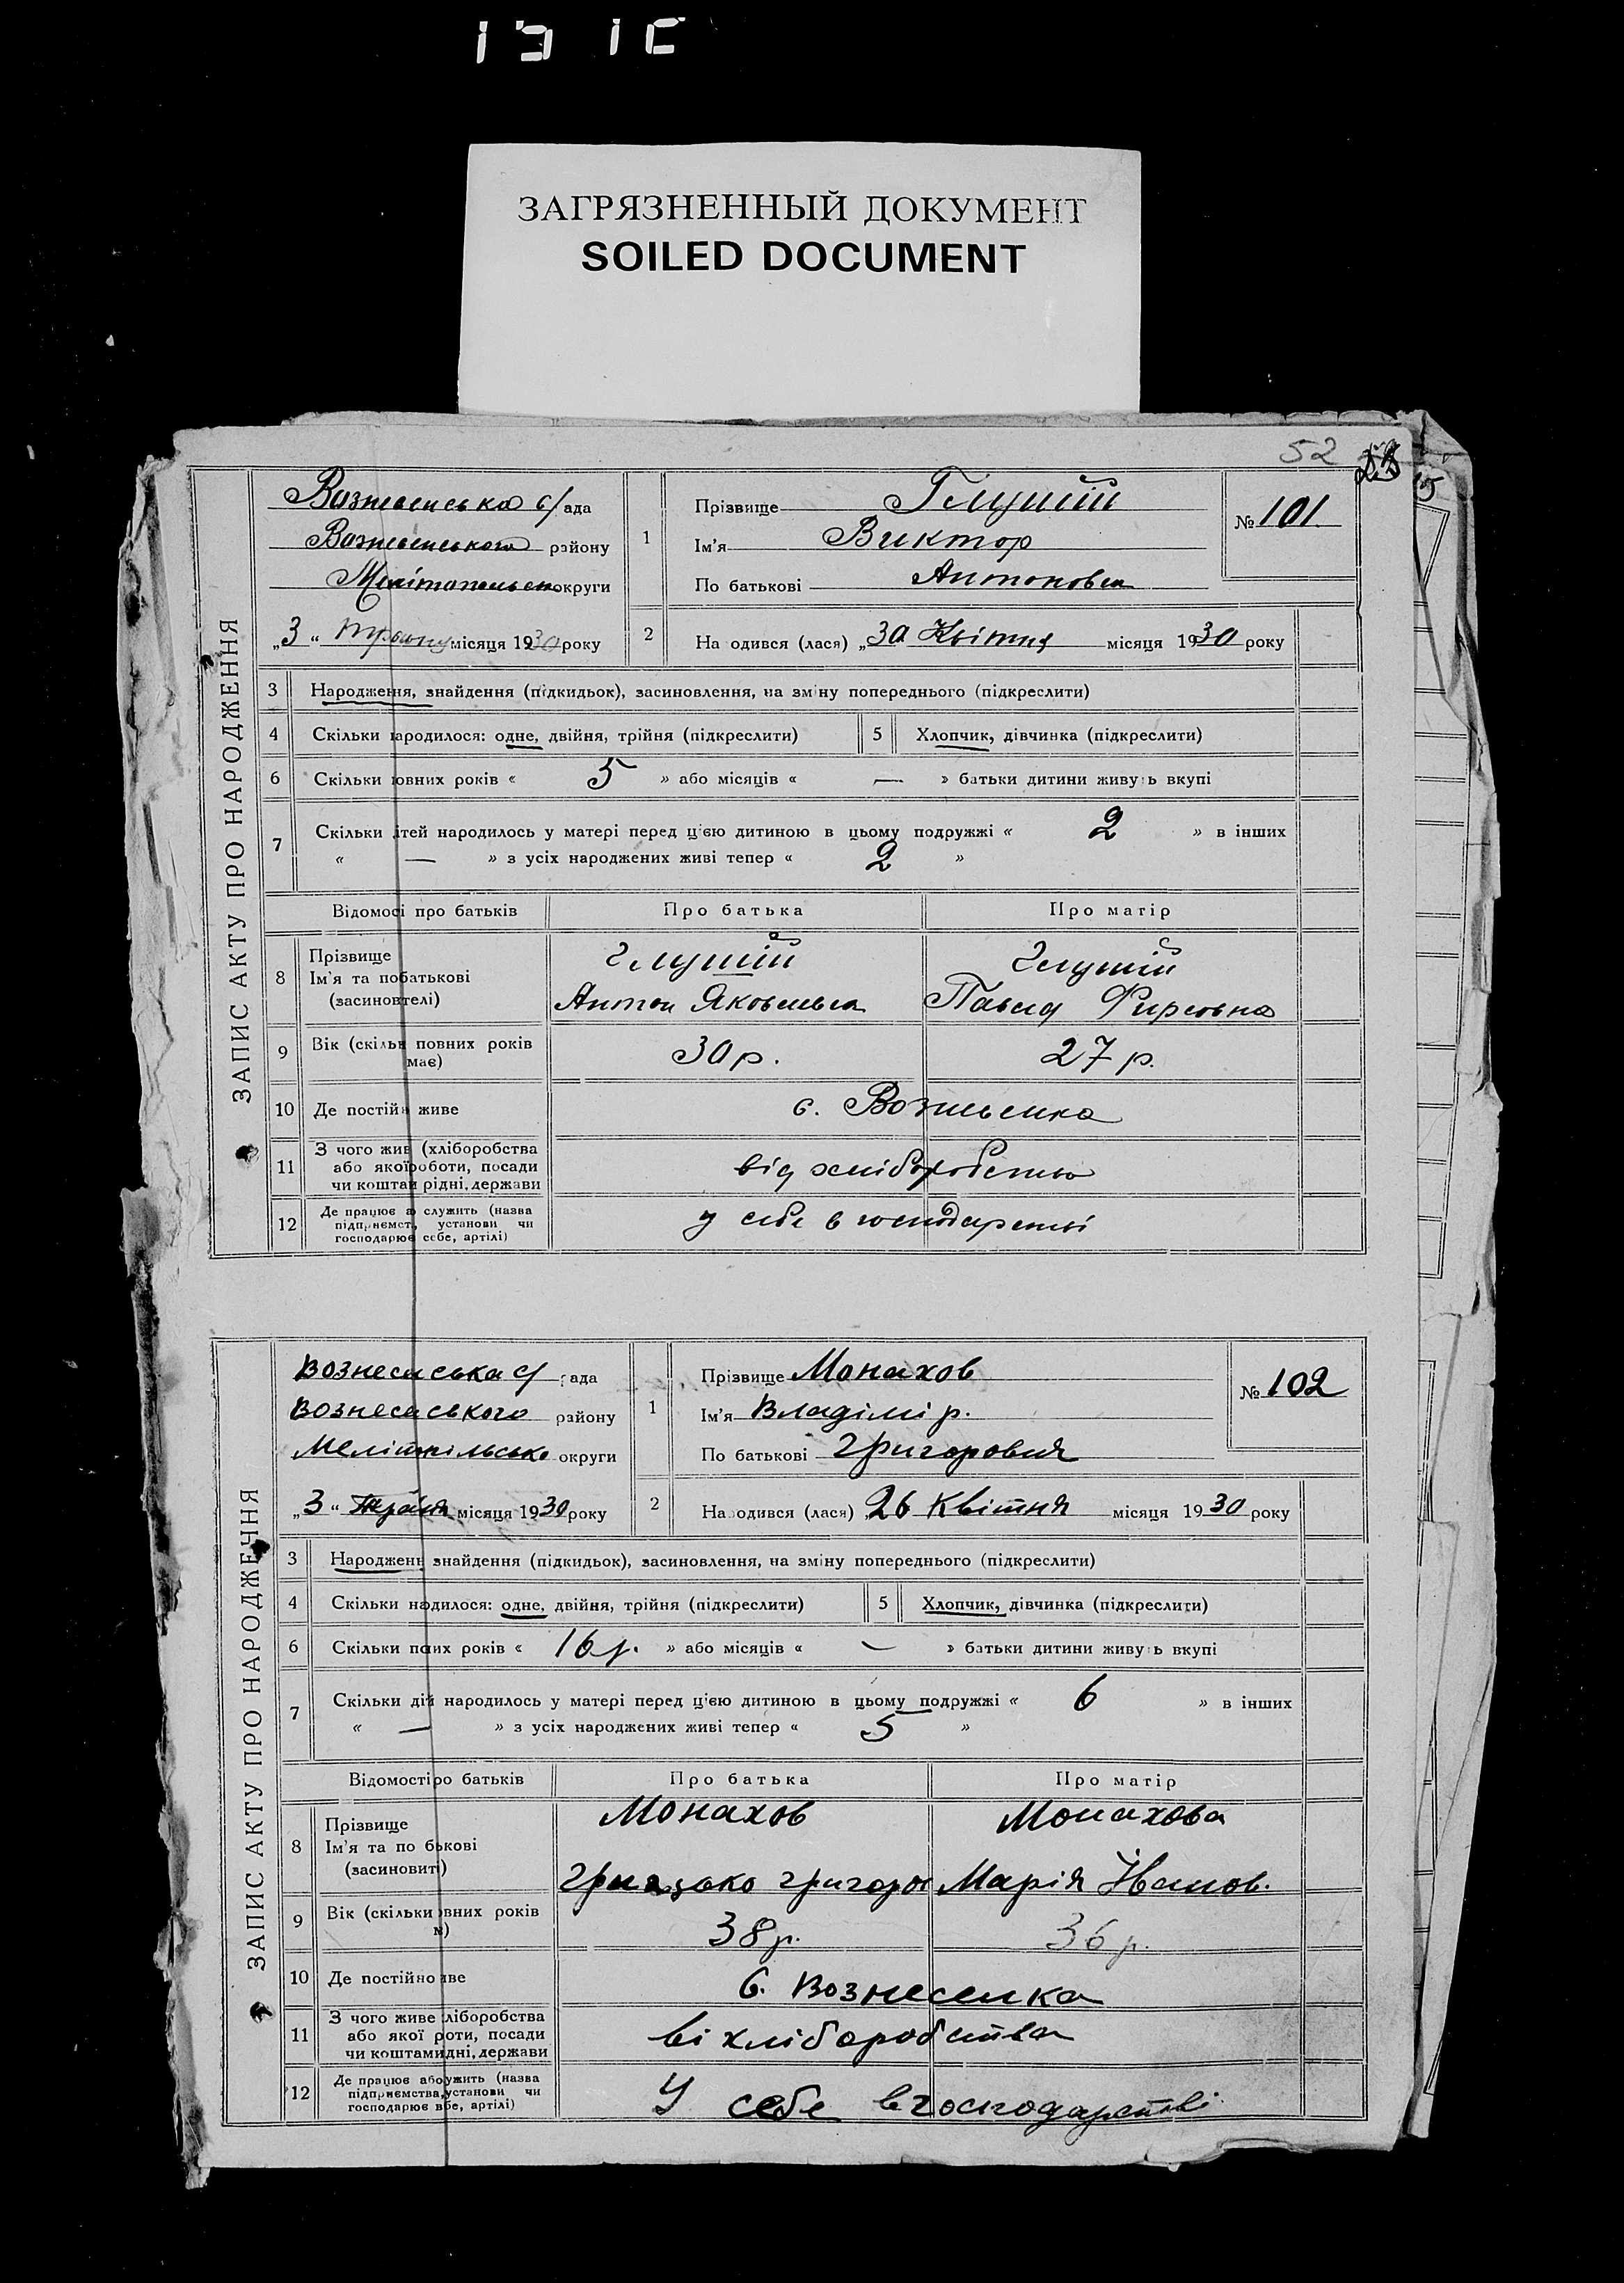 ЗАГРЯЗНЕННЫЙ ДОКУМЕНТ
SOILED DOCUMENT
52
ЗАПИС АКТУ ПРО НАРОДЖЕННЯ
Вознесенська с/ ада
Вознесенського району
округи
„3“ місяця 1930 року
1
Прізвище
Ім'я Виктор
По батькові Антонович
№ 101
2 На одився (лася) „30 Квітня місяця 1930 року
3 Народження, знайдення (підкидьок), засиновлення, на зміну попереднього (підкреслити)
4 Скільки ародилося: одне, двійня, трійня (підкреслити) 5 Хлопчик, дівчинка (підкреслити)
6 Скільки овних років « 5 » або місяців « — » батьки дитини живуть вкупі
7 Скільки ітей народилось у матері перед цією дитиною в цьому подружжі « 2 » в інших
« — » з усіх народжених живі тепер « 2 »
Відомосі про батьків Про батька Про матір
8 Прізвище
Ім'я та побатькові
(засиновтелі)
Антон Яковлевич
9 Вік (скільи повних років має) 30 р. 27 р.
10 Де постійн живе с. Вознесенка
11 З чого жив (хліборобства
або якої роботи, посади
чи коштаи рідні, держави
від хліборобства
12 Де працює а служить (назва
підприємст, установи чи
господарює себе, артілі)
у себе в господарстві
ЗАПИС АКТУ ПРО НАРОДЖЕННЯ
Вознесенська с/ ада
Вознесенського району
округи
„3“ Травня місяця 1930 року
1
Прізвище Монахов
Ім'я Владімір.
По батькові Григорович
№ 102
2 На одився (лася) 26 Квітня місяця 1930 року
3 Народженн знайдення (підкидьок), засиновлення, на зміну попереднього (підкреслити)
4 Скільки наодилося: одне, двійня, трійня (підкреслити) 5 Хлопчик, дівчинка (підкреслити)
6 Скільки поих років « 16 р. » або місяців « — » батьки дитини живуть вкупі
7 Скільки дій народилось у матері перед цією дитиною в цьому подружжі « 6 » в інших
« — » з усіх народжених живі тепер « 5 »
Відомостіро батьків Про батька Про матір
8 Прізвище Монахов Монахова
Ім'я та по бькові
(засиновит)
Грицько Григоров Марія Іванов.
9 Вік (скільки овних років м) 38 р. 36 р.
10 Де постійно ве с. Вознесенка
11 З чого живе ліборобства
або якої роти, посади
чи коштами дні, держави
ві хліборобства
12 Де працює або ужить (назва
підприємства, установи чи
господарює в бе, артілі)
У себе в господарстві